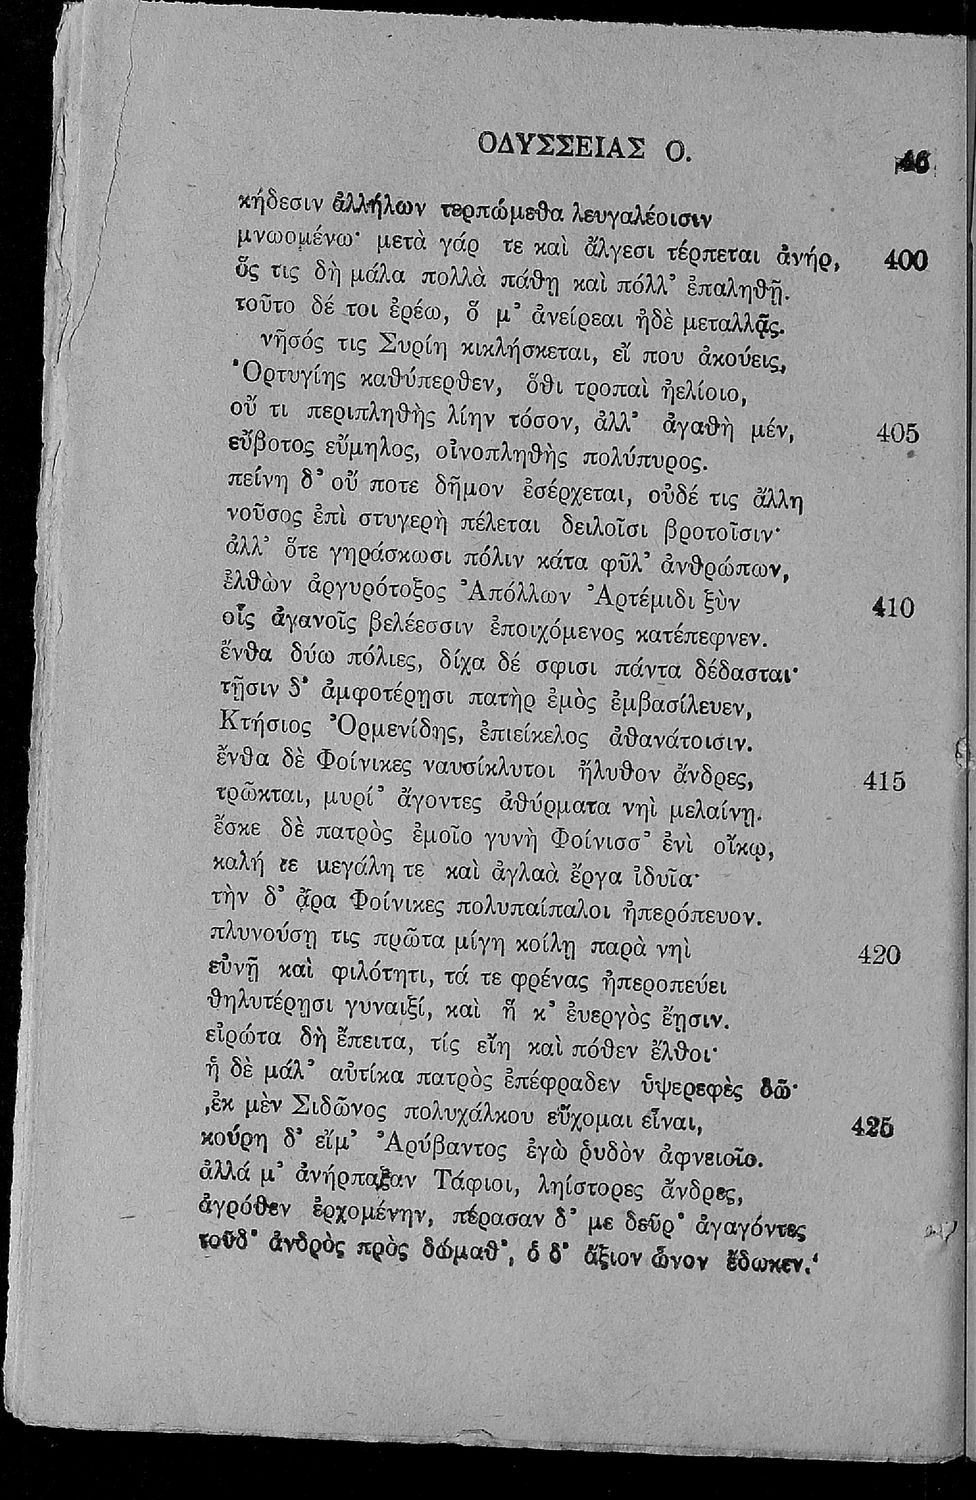 ΟΔΥΣΣΕΙΑΣ Ο.
46
κήδεσιν ἀλλήλων τερπώμεθα λευγαλέοισιν
μνωομένω· μετὰ γάρ τε καὶ ἄλγεσι τέρπεται ἀνήρ, 400
ὅς τις δὴ μάλα πολλὰ πάθῃ καὶ πόλλ᾽ ἐπαληθῇ.
τοῦτο δέ τοι ἐρέω, ὅ μ᾽ ἀνείρεαι ἠδὲ μεταλλᾷς.
νῆσός τις Συρίη κικλήσκεται, εἴ που ἀκούεις,
Ὀρτυγίης καθύπερθεν, ὅθι τροπαὶ ἠελίοιο,
οὔ τι περιπληθὴς λίην τόσον, ἀλλ᾽ ἀγαθὴ μέν, 405
εὔβοτος εὔμηλος, οἰνοπληθὴς πολύπυρος.
πείνη δ᾽ οὔ ποτε δῆμον ἐσέρχεται, οὐδέ τις ἄλλη
νοῦσος ἐπὶ στυγερὴ πέλεται δειλοῖσι βροτοῖσιν·
ἀλλ᾽ ὅτε γηράσκωσι πόλιν κάτα φῦλ᾽ ἀνθρώπων,
ἐλθὼν ἀργυρότοξος Ἀπόλλων Ἀρτέμιδι ξὺν 410
οἷς ἀγανοῖς βελέεσσιν ἐποιχόμενος κατέπεφνεν.
ἔνθα δύω πόλιες, δίχα δέ σφισι πάντα δέδασται·
τῇσιν δ᾽ ἀμφοτέρῃσι πατὴρ ἐμὸς ἐμβασίλευεν,
Κτήσιος Ὀρμενίδης, ἐπιείκελος ἀθανάτοισιν.
ἔνθα δὲ Φοίνικες ναυσίκλυτοι ἤλυθον ἄνδρες, 415
τρῶκται, μυρί᾽ ἄγοντες ἀθύρματα νηὶ μελαίνῃ.
ἔσκε δὲ πατρὸς ἐμοῖο γυνὴ Φοίνισσ᾽ ἐνὶ οἴκῳ,
καλή τε μεγάλη τε καὶ ἀγλαὰ ἔργα ἰδυῖα·
τὴν δ᾽ ἄρα Φοίνικες πολυπαίπαλοι ἠπερόπευον.
πλυνούσῃ τις πρῶτα μίγη κοίλῃ παρὰ νηὶ 420
εὐνῇ καὶ φιλότητι, τά τε φρένας ἠπεροπεύει
θηλυτέρῃσι γυναιξί, καὶ ἥ κ᾽ ἐυεργὸς ἔῃσιν.
εἰρώτα δὴ ἔπειτα, τίς εἴη καὶ πόθεν ἔλθοι·
ἡ δὲ μάλ᾽ αὐτίκα πατρὸς ἐπέφραδεν ὑψερεφὲς δῶ·
‚ἐκ μὲν Σιδῶνος πολυχάλκου εὔχομαι εἶναι, 425
κούρη δ᾽ εἴμ᾽ Ἀρύβαντος ἐγὼ ῥυδὸν ἀφνειοῖο.
ἀλλά μ᾽ ἀνήρπαξαν Τάφιοι, ληίστορες ἄνδρες,
ἀγρόθεν ἐρχομένην, πέρασαν δ᾽ με δεῦρ᾽ ἀγαγόντες
τοῦδ᾽ ἀνδρὸς πρὸς δώμαθ᾽, ὁ δ᾽ ἄξιον ὦνον ἔδωκεν.‘